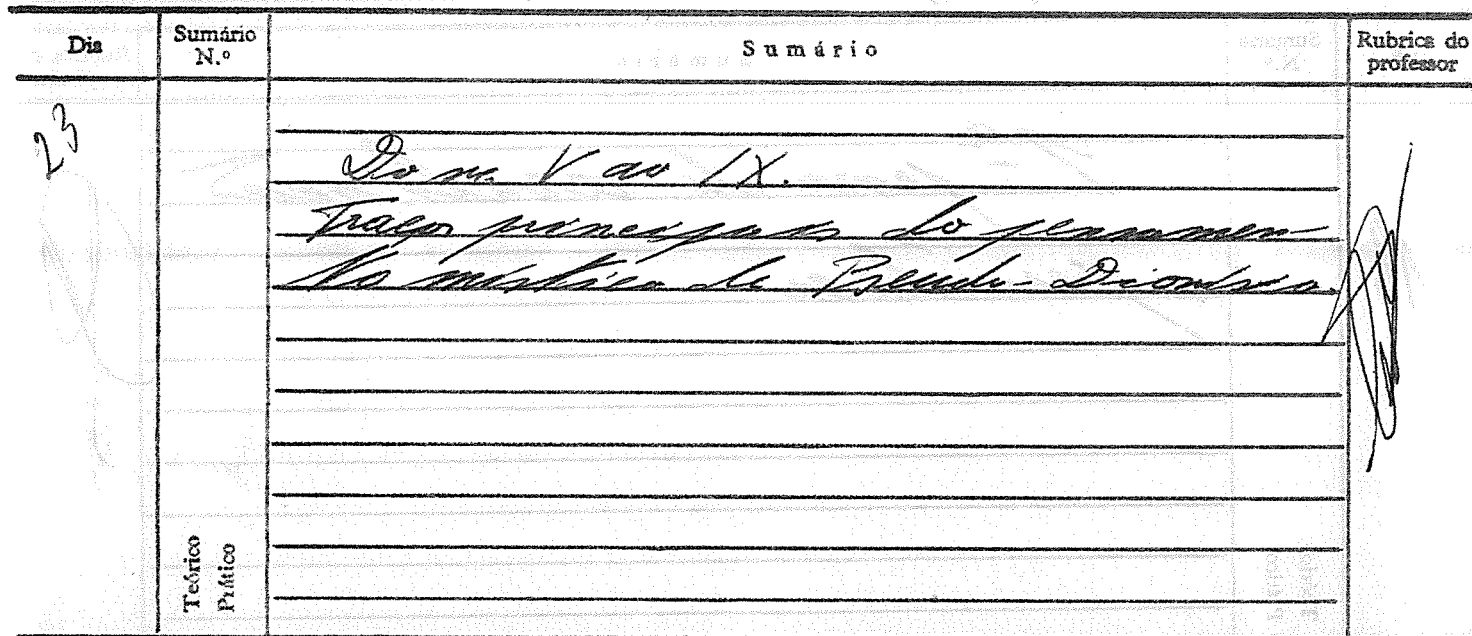 Dia Sumário N.º Sumário Rubrica do professor
23
Do séc. V ao IX.
Traços principais do pensamen-
to místico de Pseudo-Dionísio.
Teórico
Prático